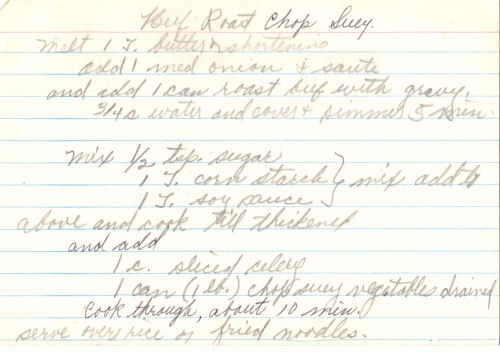 Beef Roast Chop Suey.
Melt 1 T. butter or shortening
add 1 med onion & saute
and add 1 can roast beef with gravy,
3/4 c water and cover & simmer 5 min.
Mix 1/2 tsp. sugar
1 T. corn starch } mix add to
1 T. soy sauce
above and cook till thickened
and add
1 c. sliced celery
1 can (1 lb.) chop suey vegetables drained
cook through, about 10 min.
serve over rice or fried noodles.